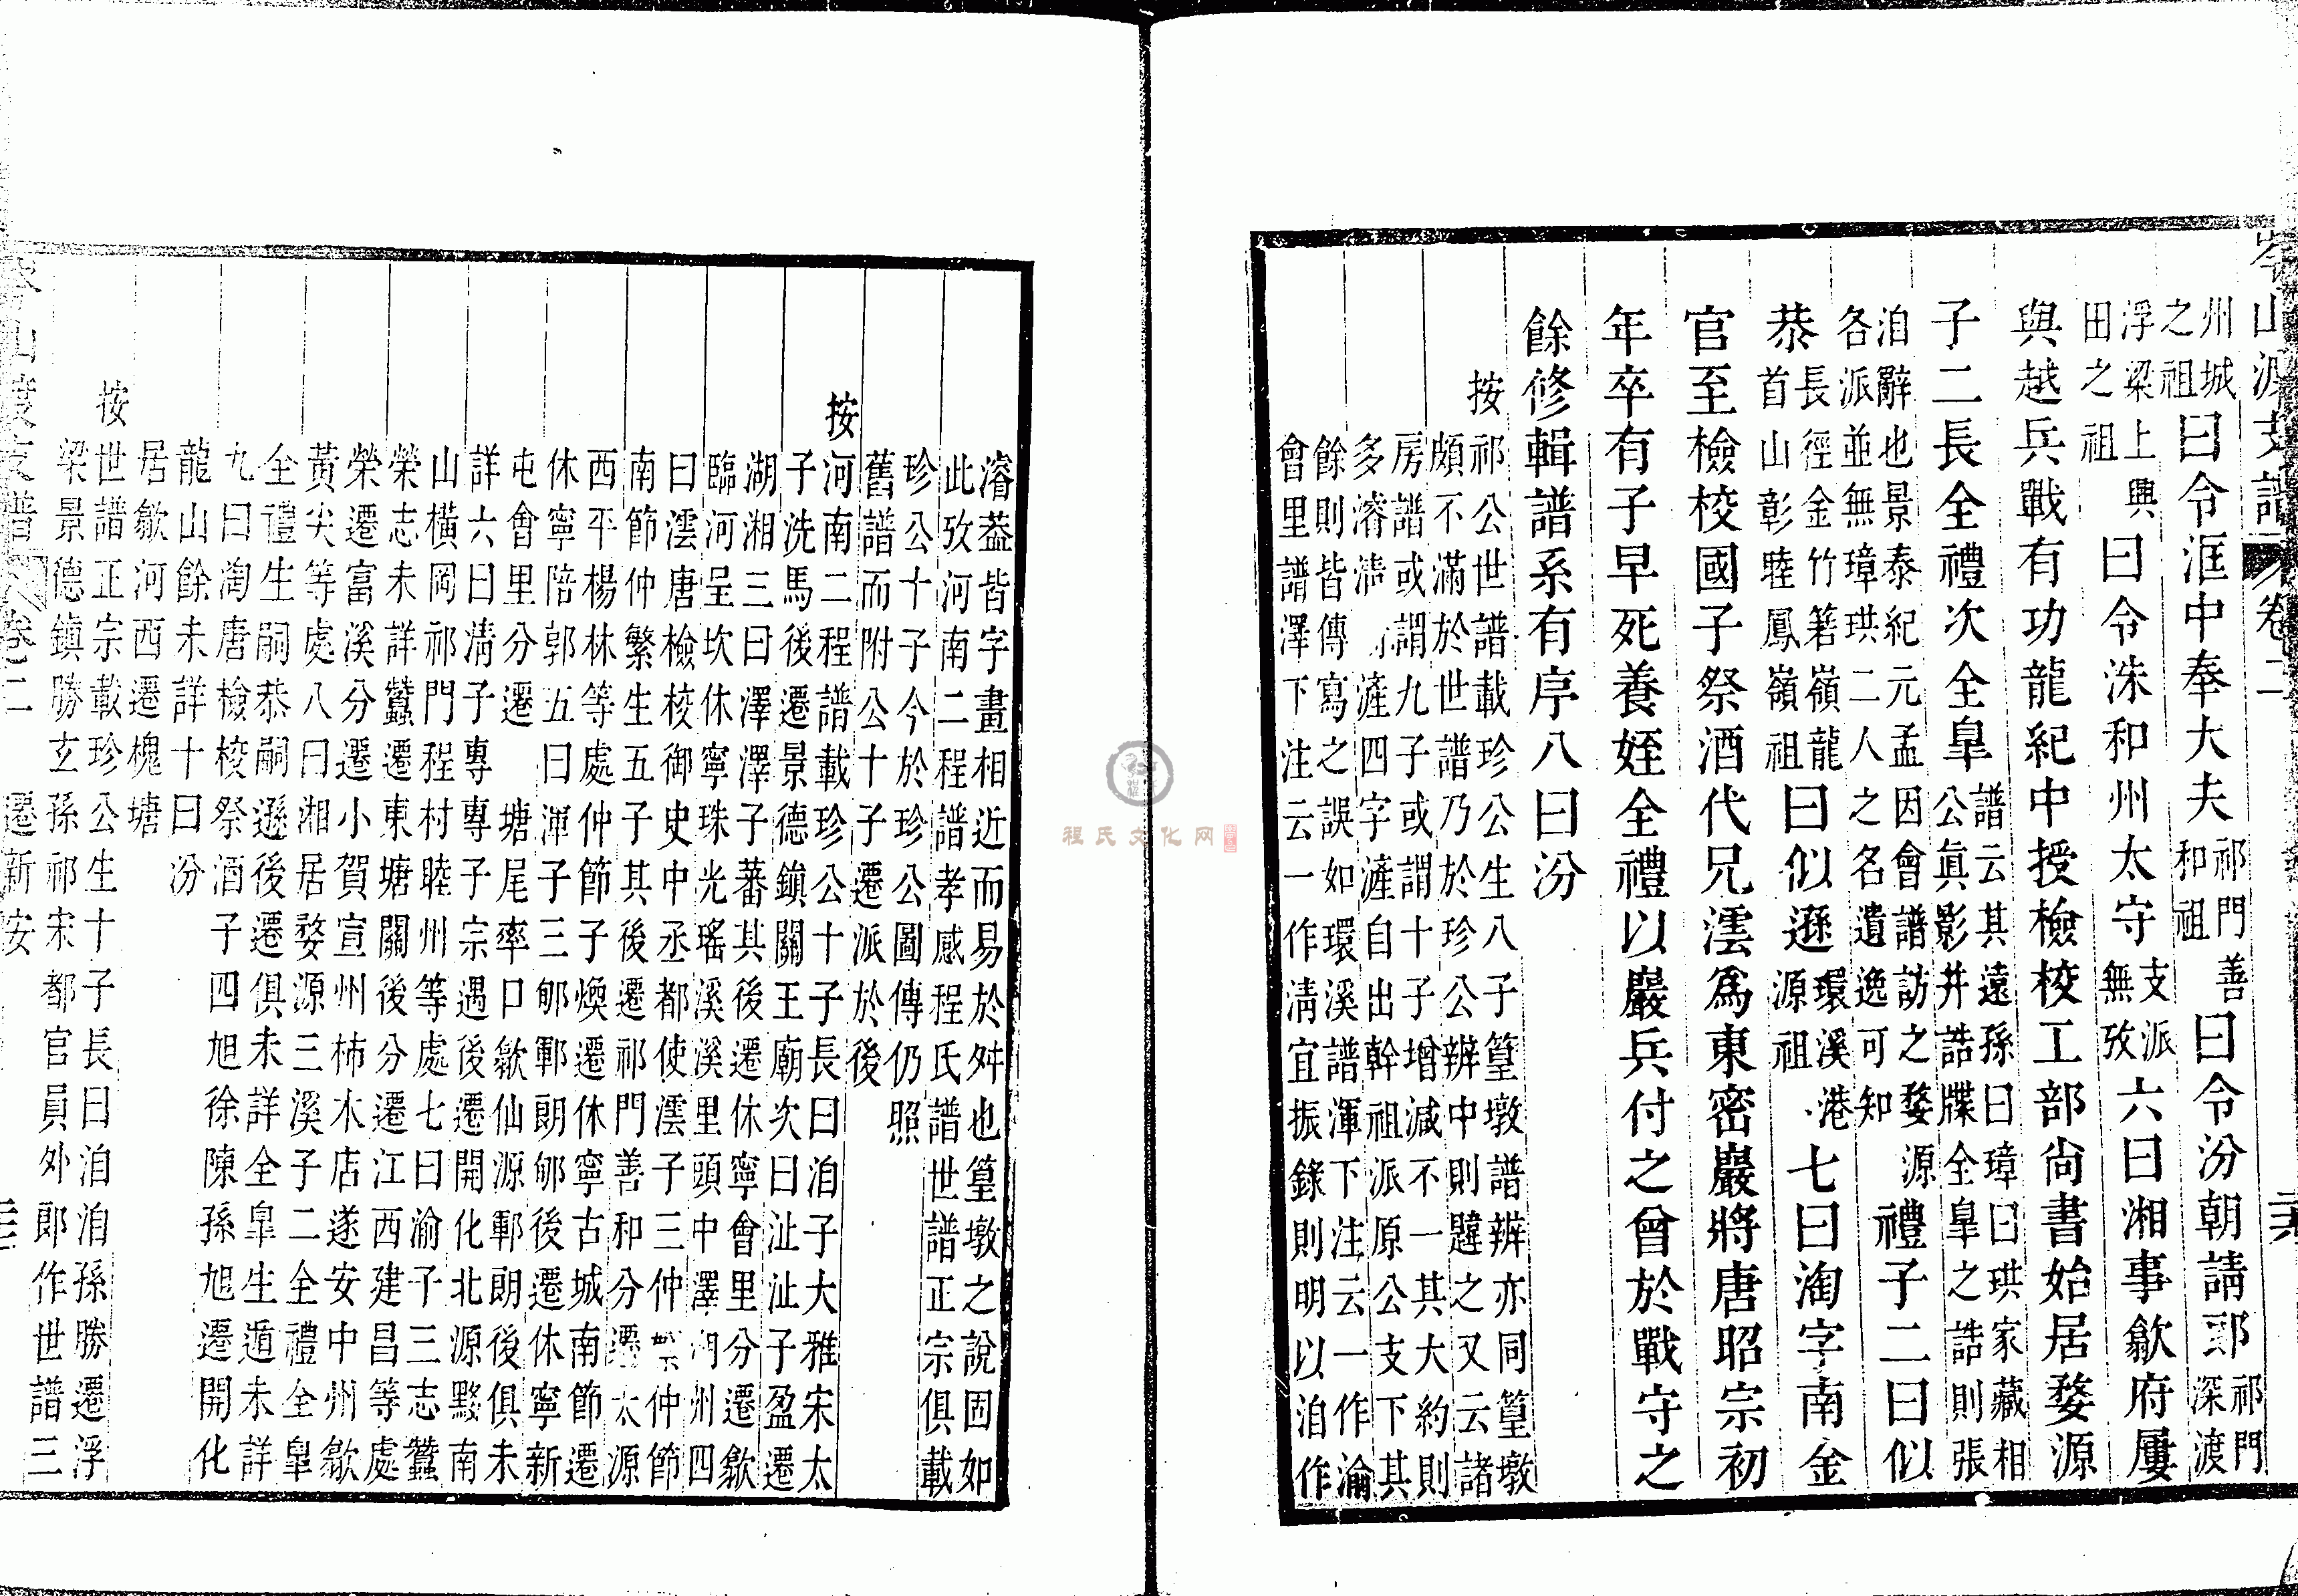 岑山渡支譜 卷二
州城之祖曰令洭中奉大夫祁門善和祖曰令汾朝請郎祁門深渡
浮梁上興田之祖曰令洙和州太守支派無攷六曰湘事歙府屢
與越兵戰有功龍紀中授檢校工部尙書始居婺源
子二長全禮次全臯譜云其遠孫曰璋曰珙家藏相公眞影井誥牒全臯之誥則張
洎辭也景泰紀元孟因會譜訪之婺源各派並無璋珙二人之名遺逸可知禮子二曰似
恭長徑金竹箬嶺龍首山彰睦鳳嶺祖曰似遜環溪港源祖七曰淘字南金
官至檢校國子祭酒代兄澐爲東密巖將唐昭宗初
年卒有子早死養姪全禮以巖兵付之曾於戰守之
餘修輯譜系有序八曰汾
按祁公世譜載珍公生八子篁墩譜辨亦同篁墩
頗不滿於世譜乃於珍公辨中則韙之又云諸
房譜或謂九子或謂十子增減不一其大約則
多濬淸 滻四字滻自出幹祖派原公支下其
餘則皆傳寫之誤如環溪譜渾下注云一作瀹
會里譜澤下注云一作淸宜振錄則明以洎作
濬葢皆字畫相近而易於舛也篁墩之說固如
此攷河南二程譜孝感程氏譜世譜正宗俱載
珍公十子今於珍公圖傳仍照
舊譜而附公十子遷派於後
按河南二程譜載珍公十子長曰洎子大雅宋太
子洗馬後遷景德鎭關王廟次曰沚沚子盈遷
湖湘三曰澤澤子蕃其後遷休寧會里分遷歙
臨河呈坎休寧珠光瑤溪溪里頭中澤 州四
曰澐唐檢校御史中丞都使澐子三仲繁仲節
南節仲繁生五子其後遷祁門善和分遷太源
西平楊林等處仲節子煥遷休寧古城南節遷
休寧陪郭五曰渾子三郇鄆朗郇後遷休寧新
屯會里分遷 塘尾率口歙仙源鄆朗後俱未
詳六曰淸子專專子宗遇後遷開化北源黟南
山橫岡祁門程村睦州等處七曰瀹子三志蠶
榮志未詳蠶遷東塘關後分遷江西建昌等處
榮遷富溪分遷小賀宣州柿木店遂安中州歙
黃尖等處八曰湘居婺源三溪子二全禮全臯
全禮生嗣恭嗣遜後遷俱未詳全臯生遁未詳
九曰淘唐檢校祭酒子四旭徐陳孫旭遷開化
龍山餘未詳十曰汾
居歙河西遷槐塘
按世譜正宗載珍公生十子長曰洎洎孫勝遷浮
梁景德鎮勝玄孫祁宋都官員外郎作世譜三
岑山渡支譜 卷二 遷新安